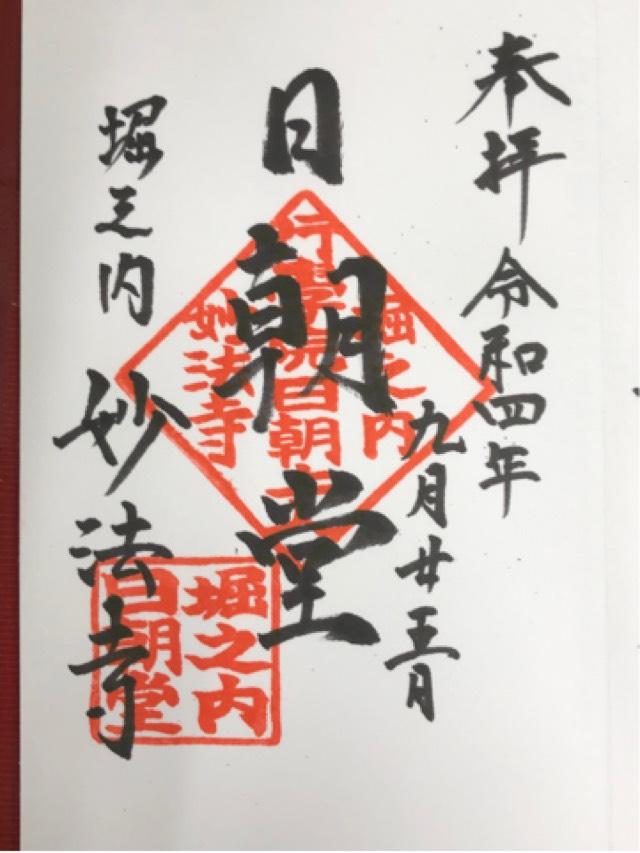 奉拝 令和四年
九月廿五日
日朝堂
堀之内 妙法寺
堀之内
行学院日朝堂
妙法寺
堀之内
日朝堂